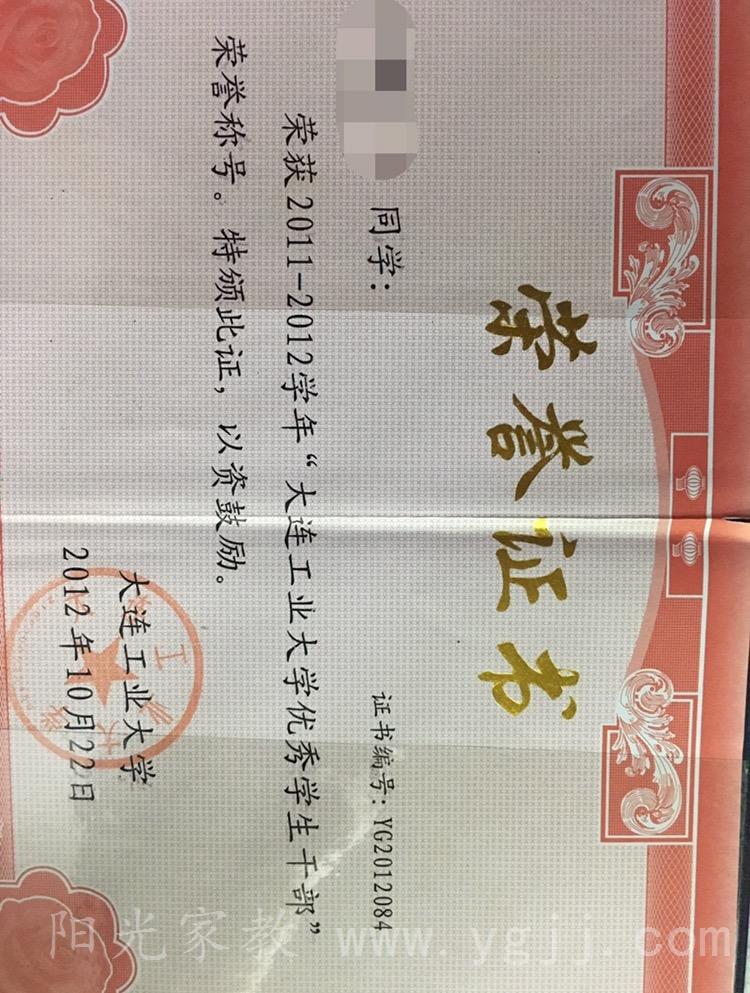 荣誉证书
证书编号：YG2012084
同学：
荣获2011-2012学年“大连工业大学优秀学生干部”
荣誉称号。特颁此证，以资鼓励。
大连工业大学
2012年10月22日
阳光家教 www.ygjj.com